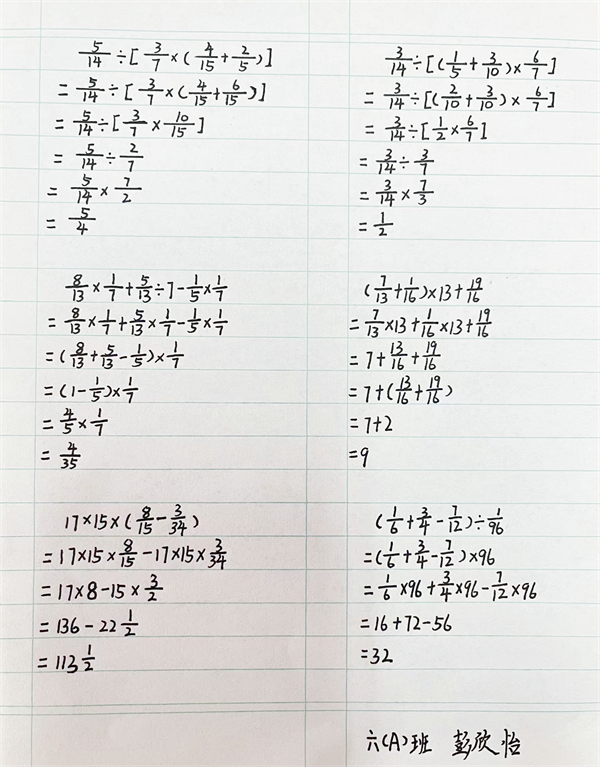 5/14÷[3/7×(4/15+2/5)]
=5/14÷[3/7×(4/15+6/15)]
=5/14÷[3/7×10/15]
=5/14÷2/7
=5/14×7/2
=5/4
3/14÷[(1/5+3/10)×6/7]
=3/14÷[(2/10+3/10)×6/7]
=3/14÷[1/2×6/7]
=3/14÷3/7
=3/14×7/3
=1/2
8/13×1/7+5/13÷7-1/5×1/7
=8/13×1/7+5/13×1/7-1/5×1/7
=(8/13+5/13-1/5)×1/7
=(1-1/5)×1/7
=4/5×1/7
=4/35
(7/13+1/16)×13+19/16
=7/13×13+1/16×13+19/16
=7+13/16+19/16
=7+(13/16+19/16)
=7+2
=9
17×15×(8/15-3/34)
=17×15×8/15-17×15×3/34
=17×8-15×3/2
=136-22 1/2
=113 1/2
(1/6+3/4-7/12)÷1/96
=(1/6+3/4-7/12)×96
=1/6×96+3/4×96-7/12×96
=16+72-56
=32
六(A)班 彭欣怡